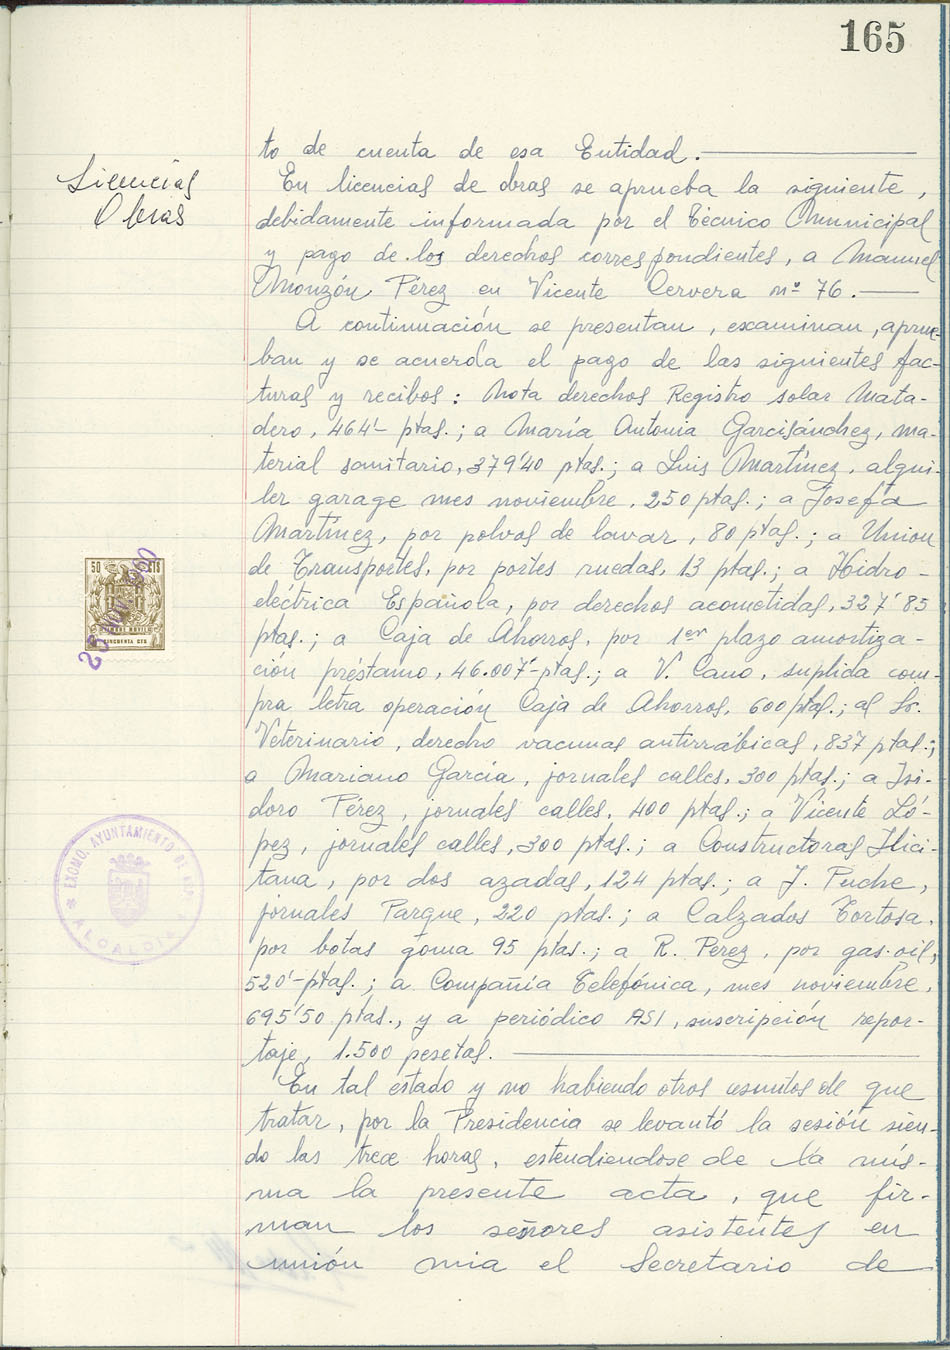 165
Licencias
Obras
to de cuenta de esa Entidad.
En licencias de obras se aprueba la siguiente,
debidamente informada por el Técnico Municipal
y pago de los derechos correspondientes, a Manuel
Monzón Pérez en Vicente Cervera nº 76.
A continuación se presentan, examinan, aprue-
ban y se acuerda el pago de las siguientes fac-
turas y recibos: Nota derechos Registro solar Mata-
dero, 464'- ptas.; a María Antonia Garcisánchez, ma-
terial sanitario, 379'40 ptas.; a Luis Martínez, alqui-
ler garage mes noviembre, 250 ptas.; a Josefa
Martínez, por polvos de lavar, 80 ptas.; a Union
de Transportes, por portes ruedas, 13 ptas.; a Hidro-
eléctrica Española, por derechos acometidas, 327'85
ptas.; a Caja de Ahorros, por 1er plazo amortiza-
ción préstamo, 46.007'-ptas.; a V. Cano, suplida com-
pra letra operación Caja de Ahorros, 600 ptas.; al Sr.
Veterinario, derecho vacunas antirrábicas, 837 ptas.;
a Mariano García, jornales calles, 300 ptas.; a Isi-
doro Pérez, jornales calles, 400 ptas.; a Vicente Ló-
pez, jornales calles, 300 ptas.; a Constructoras Ilici-
tana, por dos azadas, 124 ptas.; a J. Puche,
jornales Parque, 220 ptas.; a Calzados Tortosa,
por botas goma 95 ptas.; a R. Perez, por gas-oil,
520'-ptas.; a Compañía Telefónica, mes noviembre,
695'50 ptas., y a periódico ASI, suscripción repor-
taje, 1.500 pesetas.
En tal estado y no habiendo otros asuntos de que
tratar, por la Presidencia se levantó la sesión sien-
do las trece horas, estendiendose de la mis-
ma la presente acta, que fir-
man los señores asistentes en
unión mia el Secretario de
50 CTS
CINCUENTA CTS
23 NOV. 1960
EXCMO. AYUNTAMIENTO DE
ALCALDIA